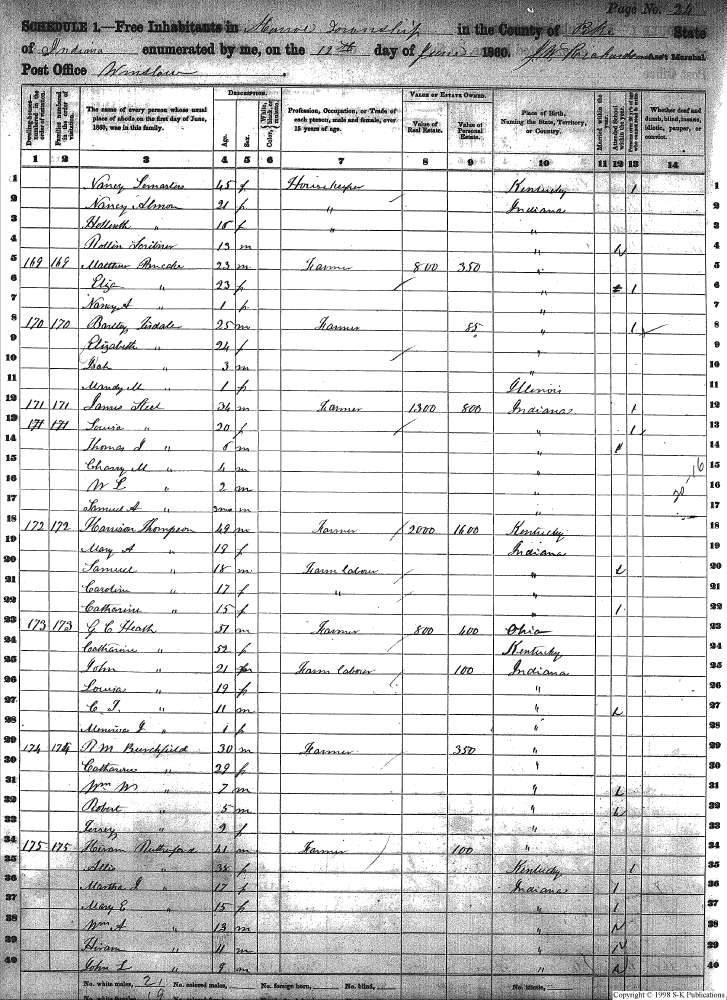 Page No. 24
SCHEDULE 1.—Free Inhabitants in Monroe Township in the County of Pike State
of Indiana enumerated by me, on the 12th day of June 1860. Ass't Marshal.
Post Office Winslow
DESCRIPTION. VALUE OF ESTATE OWNED.
Dwelling-houses—numbered in the order of visitation. Families numbered in the order of visitation. The name of every person whose usual place of abode on the first day of June, 1860, was in this family. Age. Sex. Color, White, black, or mulatto. Profession, Occupation, or Trade of each person, male and female, over 15 years of age. Value of Real Estate. Value of Personal Estate. Place of Birth, Naming the State, Territory, or Country. Married within the year. Attended School within the year. Whether deaf and dumb, blind, insane, idiotic, pauper, or convict.
1 2 3 4 5 6 7 8 9 10 11 12 13 14
1 Nancy 45 f Housekeeper Kentucky 1 1
2 Nancy Almon 21 f " Indiana 2
3 " 18 f " " 3
4 Rollin Scribner 13 m " 4
5 169 169 Matthew 23 m Farmer 800 350 " 5
6 Eliza " 23 f " 1 6
7 Nancy A " 1 f " 7
8 170 170 Bartley Tisdale 25 m Farmer 85 " 1 8
9 Elizabeth " 24 f " 9
10 " 3 m " 10
11 Mandy M " 1 f Illinois 11
12 171 171 James Steel 34 m Farmer 1300 800 Indiana 1 12
13 171 171 Louisa " 20 f " 1 13
14 Thomas J " 6 m " 14
15 Charry M " 4 m " 15
16 W L " 2 m " 16
17 Samuel A " 3mo m " 17
18 172 172 Harrison Thompson 49 m Farmer 2000 1600 Kentucky 18
19 Mary A " 19 f Indiana 19
20 Samuel " 18 m Farm labour " 20
21 Caroline " 17 f " " 21
22 Catharine " 15 f " 1 22
23 173 173 G C Heath 57 m Farmer 800 400 Ohio 23
24 Catharine " 52 f Kentucky 24
25 John " 21 m Farm labour 100 Indiana 25
26 Louisa " 19 f " 26
27 C T " 11 m " 27
28 " 1 f " 28
29 174 174 R M Burchfield 30 m Farmer 350 " 29
30 " 29 f " 30
31 Wm W " 7 m " 31
32 Robert " 5 m " 32
33 " 2 f " 33
34 175 175 Hiram Rutherford 41 m Farmer 100 " 34
35 " 38 f Kentucky 1 35
36 Martha J " 17 f Indiana 1 36
37 Mary E " 15 f " 1 37
38 Wm A " 13 m " 38
39 Hiram " 11 m " 39
40 John L " 9 m " 40
No. white males, 21 No. colored males, No. foreign born, No. blind, No. idiotic,
No. white females, 19
Copyright © 1998 S-K Publications